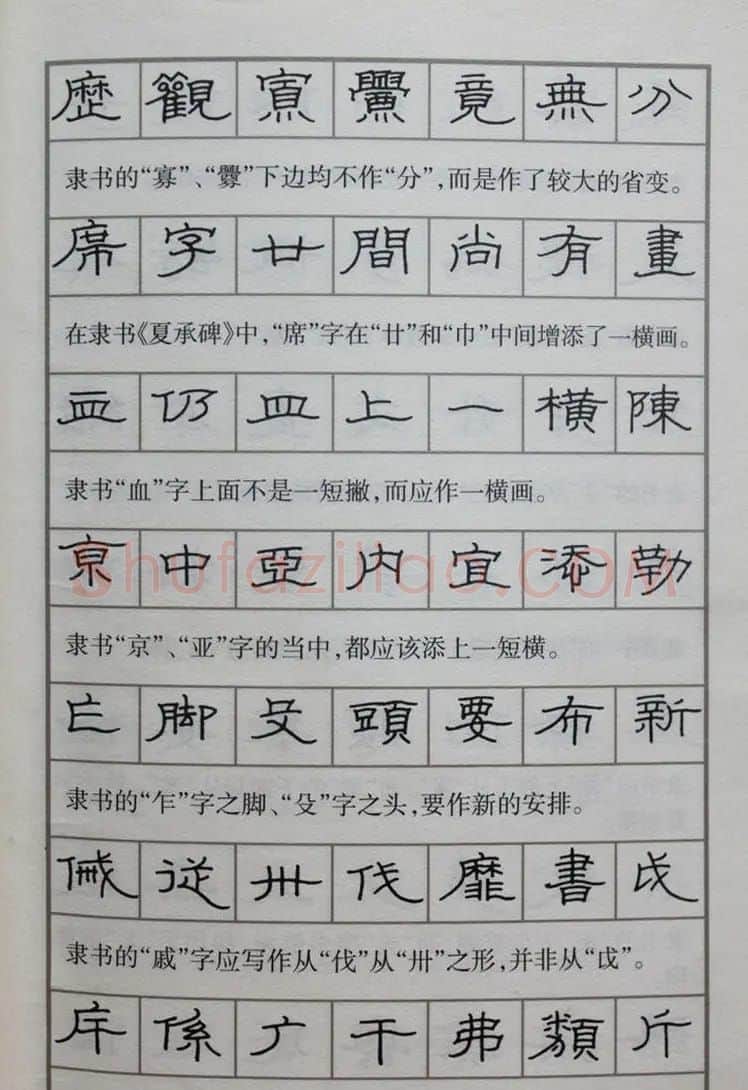 歷觀寡釁竟無分
隶书的“寡”、“釁”下边均不作“分”，而是作了较大的省变。
席字廿間尚有畫
在隶书《夏承碑》中，“席”字在“廿”和“巾”中间增添了一横画。
血仍皿上一橫陳
隶书“血”字上面不是一短撇，而应作一横画。
京中亞内宜添勒
隶书“京”、“亚”字的当中，都应该添上一短横。
亡脚殳頭要布新
隶书的“乍”字之脚、“殳”字之头，要作新的安排。
戚從卅伐靡書戉
隶书的“戚”字应写作从“伐”从“卅”之形，并非从“戉”。
庠係广干弗類斤
shufaziliao.COM